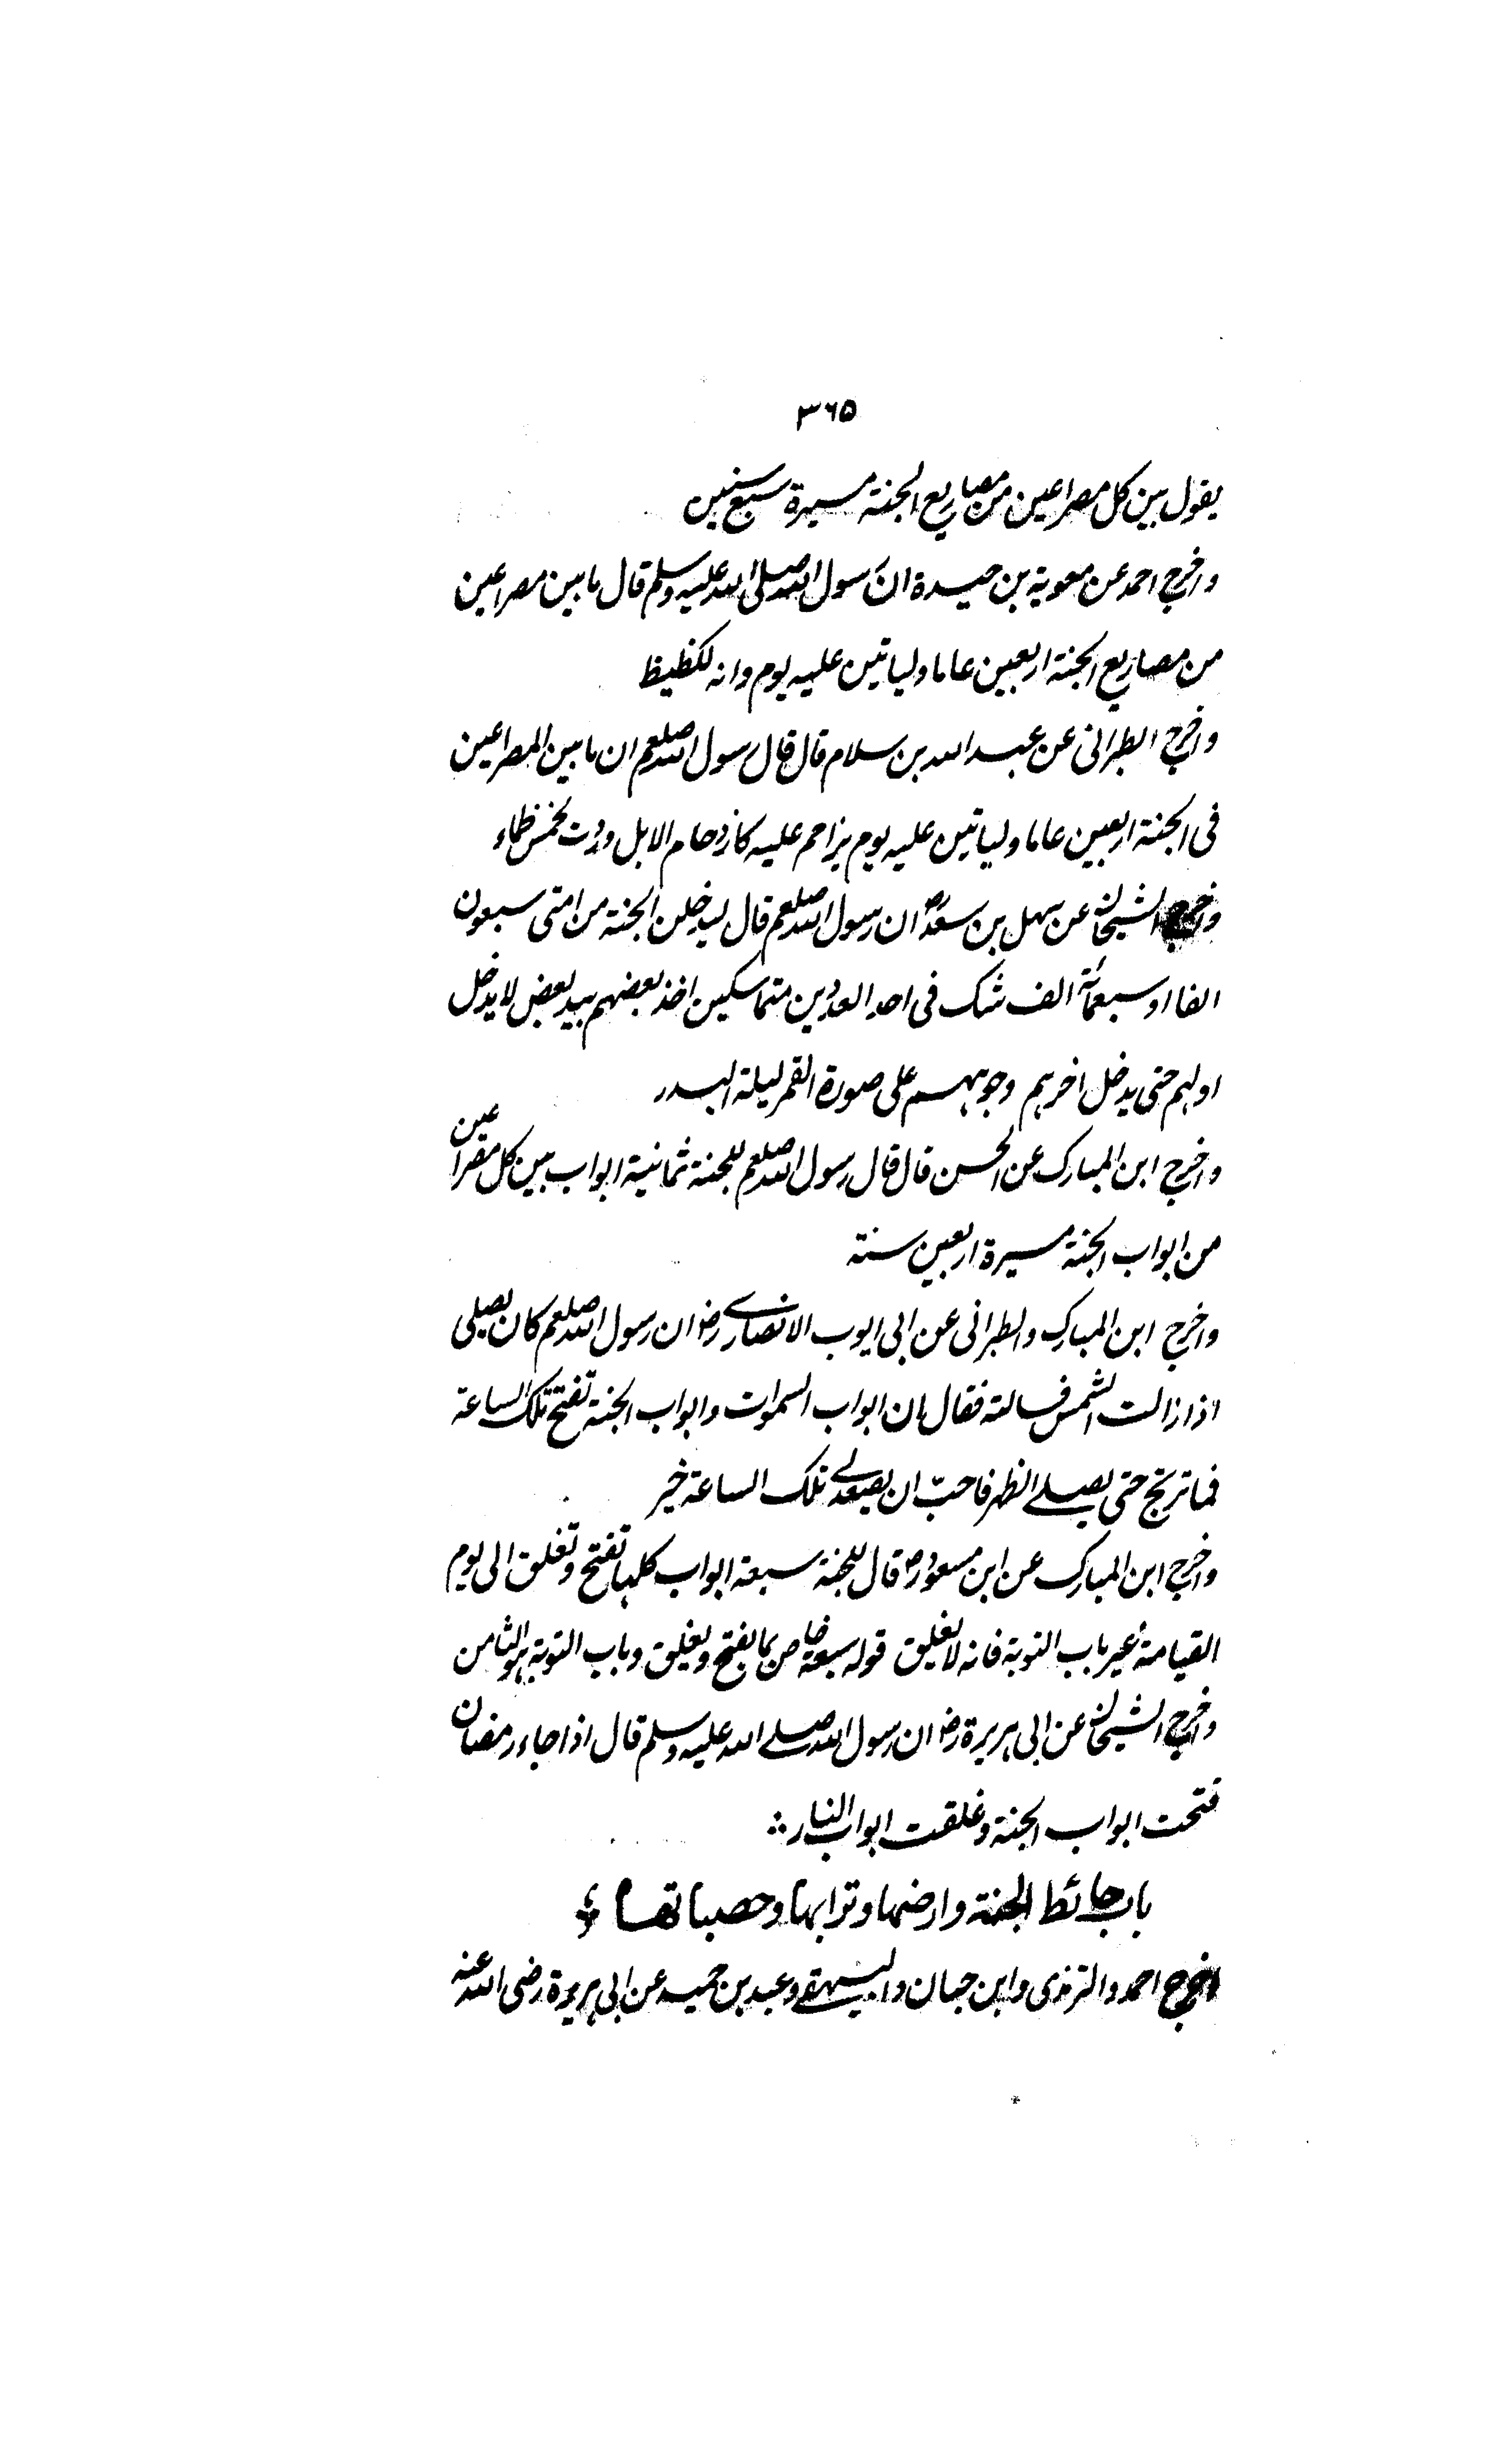 ٣٦٥
يقول بين كل مصراعين من مصاريع الجنة مسيرة سبع سنين
واخرج احمد عن معوية بن حيدة ان رسول الله صلى الله عليه وسلم قال ما بين مصراعين
من مصاريع الجنة اربعين عاما ولياتين عليه يوم وانه لكظيظ
واخرج الطبرانى عن عبد الله بن سلام قال قال رسول الله صلعم ان ما بين المصراعين
فى الجنة اربعين عاما ولياتين عليه يوم يزاحم عليه كازدحام الابل وردت لخمس ظماء
واخرج الشيخان عن سهل بن سعد رض ان رسول الله صلعم قال ليدخلن الجنة من امتى سبعون
الفا او سبعمائة الف شك فى احد العددين متماسكين اخذ بعضهم بيد بعض لا يدخل
اولهم حتى يدخل اخرهم وجوههم على صورة القمر ليلة البدر
واخرج ابن المبارك عن الحسن قال قال رسول الله صلعم للجنة ثمانية ابواب بين كل مصراعين
من ابواب الجنة مسيرة اربعين سنة
واخرج ابن المبارك والطبرانى عن ابى ايوب الانصارى رض ان رسول الله صلعم كان يصلى
اذا زالت الشمس فسالته فقال ان ابواب السموات وابواب الجنة تفتح تلك الساعة
فما ترتج حتى يصلى الظهر فاحب ان يصعد لى تلك الساعة خير
واخرج ابن المبارك عن ابن مسعود رض قال للجنة سبعة ابواب كلها تفتح وتغلق الى يوم
القيامة غير باب التوبة فانه لا يغلق قوله سبعة خاص بما يفتح ويغلق وباب التوبة هو الثامن
واخرج الشيخان عن ابى هريرة رض ان رسول الله صلى الله عليه وسلم قال اذا جاء رمضان
فتحت ابواب الجنة وغلقت ابواب النار
باب حائط الجنة وارضها وترابها وحصبائها
اخرج احمد والترمذى وابن حبان والبيهقى وعبد بن حميد عن ابى هريرة رضى الله عنه